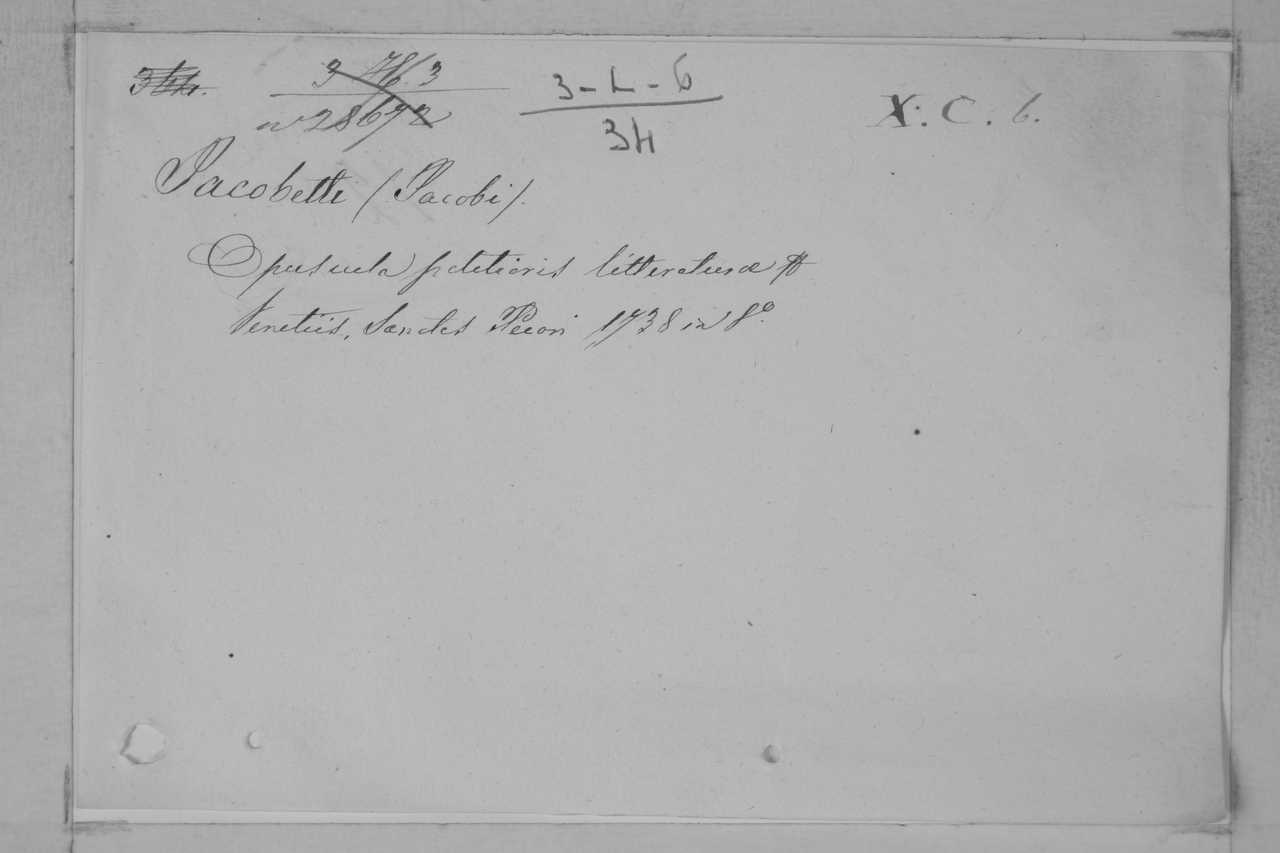 3 H. 3
nº 28672
3-L-6
34
X. C. 6.
Jacobetti (Jacobi).
Opuscula politioris litteraturæ
Venetiis, Sanctes Pecori 1738 in 8º.